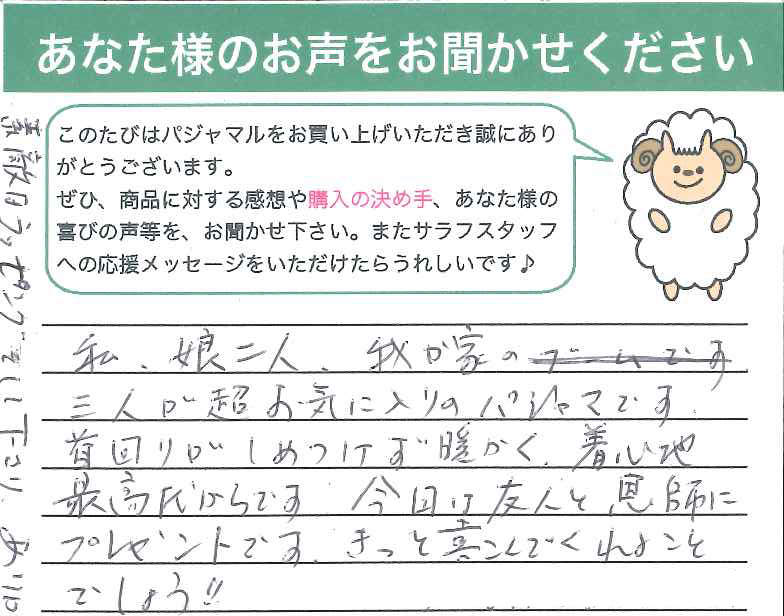 あなた様のお声をお聞かせください
このたびはパジャマルをお買い上げいただき誠にあり
がとうございます。
ぜひ、商品に対する感想や購入の決め手、あなた様の
喜びの声等を、お聞かせ下さい。またサラフスタッフ
への応援メッセージをいただけたらうれしいです♪
私、娘二人、我が家のブームです
三人が超お気に入りのパジャマです。
首回りがしめつけず暖かく、着心地
最高だからです 今回は友人と恩師に
プレゼントです。きっと喜こんでくれること
でしょう!!
素敵なラッピングをして下さり、あり